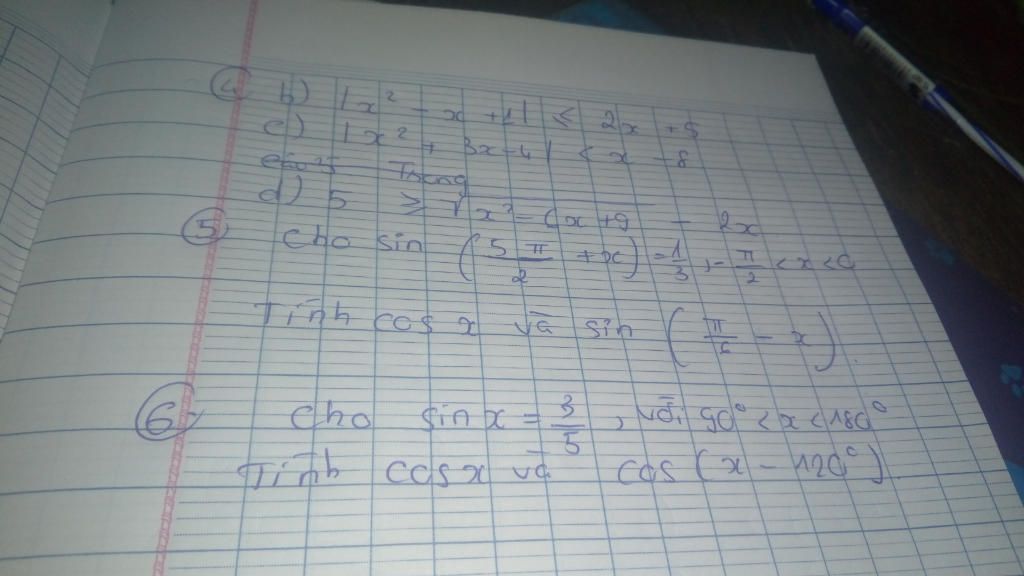 ④ b) |x² - x + 1| ≤ 2x + 5
c) |x² + 3x - 4| < x - 8
d) 5 ≥ √x² - 6x + 9 - 2x
⑤ Cho sin (5π/2 + x) = 1/3, -π/2 < x < 0
Tính cos x và sin (π/6 - x).
⑥, Cho sin x = 3/5, với 90° < x < 180°
Tính cos x và cos (x - 120°).